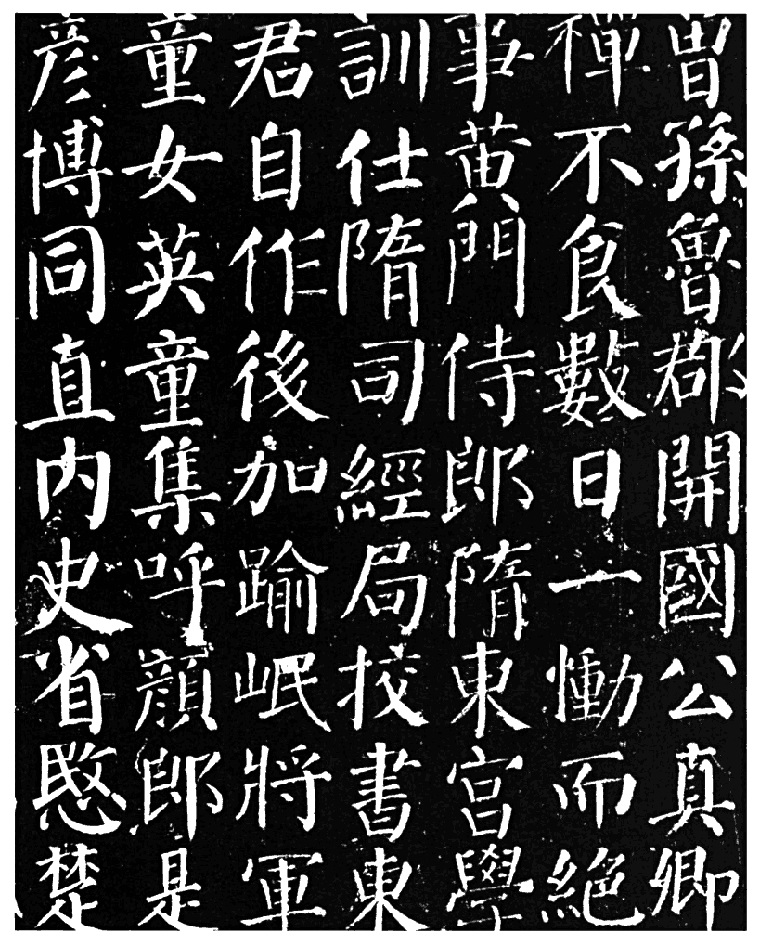 曾孫魯郡開國公真卿
禪不食數日一慟而絕
事黃門侍郎隋東宮學
訓仕隋司經局挍書東
君自作後加踰岷將軍
童女英童集呼顏郎是
彥博同直内史省愍楚